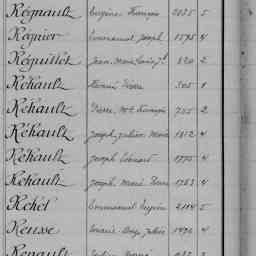 Régnault Eugène François 2035 5
Régnier Emmanuel Joseph 1595 4
Réguillet Jean, Marie 820 2
Réhault Pierre 305 1
Réhault Pierre, François 755 2
Réhault Joseph, Julien Marie 1812 4
Réhault Joseph 1775 4
Réhault Joseph, Marie Pierre 1753 4
Réhel Emmanuel Eugène 2114 5
Reusse 1496 4
Renault